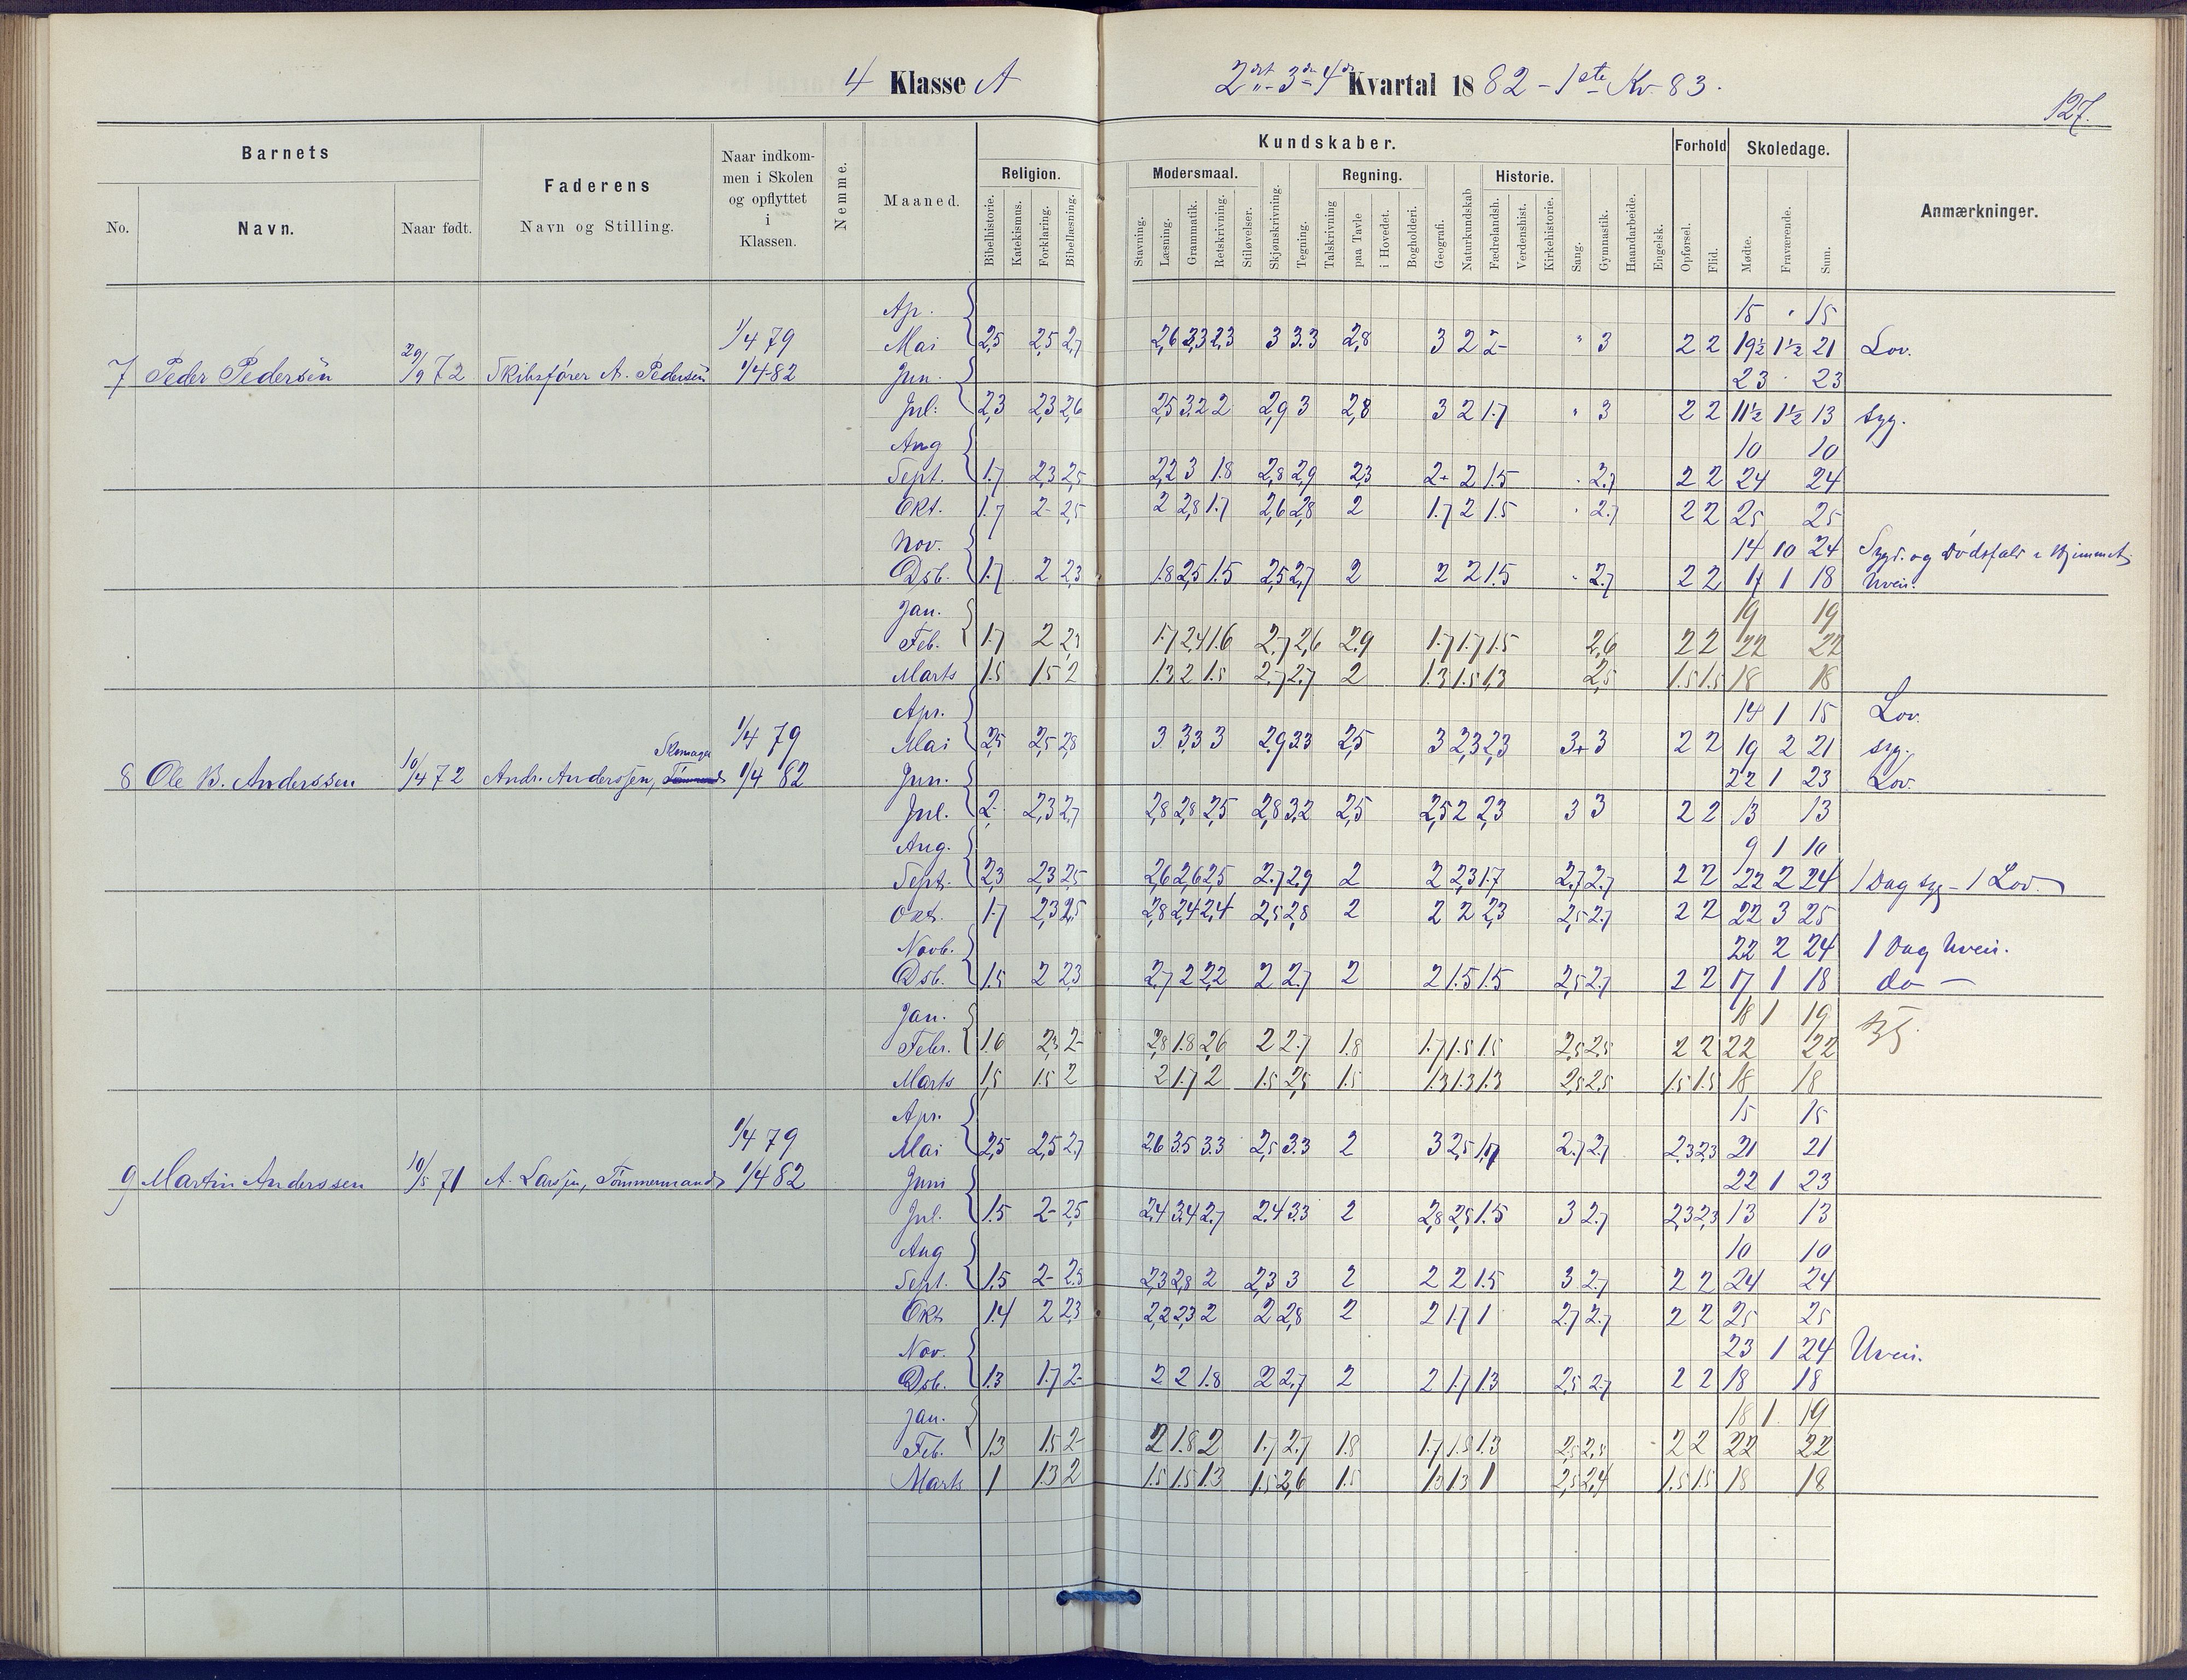 4 Klasse A
2det 3die 4de Kvartal 1882 - 1ste Kv. 83.
127.
Barnets
No.
Navn.
Naar født.
Faderens
Navn og Stilling.
Naar indkom-
men i Skolen
og opflyttet
i
Klassen.
Nemme.
Maaned.
Kundskaber.
Religion.
Bibelhistorie.
Katekismus.
Forklaring.
Bibellæsning.
Modersmaal.
Stavning.
Læsning.
Grammatik.
Retskrivning.
Stiløvelser.
Skjønskrivning.
Tegning.
Regning.
Talskrivning
paa Tavle
i Hovedet.
Bogholderi.
Geografi.
Naturkundskab
Historie.
Fædrelandsh.
Verdenshist.
Kirkehistorie.
Sang.
Gymnastik.
Haandarbeide.
Engelsk.
Forhold
Opførsel.
Flid.
Skoledage.
Mødte.
Fraværende.
Sum.
Anmærkninger.
Ap. 15 15
1/4 79 Mai 2,5 2,5 2,7 2,6 3,3 2,3 3 3.3 2,8 3 2 2- " 3 2 2 19½ 1½ 21 Lov.
7 Peder Pedersen 29/9 72 Skibsfører A. Pedersen 1/4 82 Jun. 23 23
Jul. 2,3 2,3 2,6 2,5 3,2 2 2,9 3 2,8 3 2 1.7 " 3 2 2 11½ 1½ 13 Syg.
Aug 10 10
Sept. 1.7 2,3 2,5 2,2 3 1.8 2,8 2,9 2,3 2+ 2 1.5 2.7 2 2 24 24
Okt. 1.7 2- 2,5 2 2,8 1.7 2,6 2,8 2 1.7 2 1.5 2.7 2 2 25 25
Nov. 14 10 24 Sygd. og Dødsfald i Hjemmet
Dsb. 1.7 2 2,3 1.8 2,5 1.5 2,5 2,7 2 2 2 1.5 2.7 2 2 17 1 18 Uveir.
Jan. 19 19
Feb. 1.7 2 2,3 1.7 2,4 1.6 2.7 2,6 2.9 1.7 1.7 1.5 2,6 2 2 22 22
Marts 1.5 1.5 2 1.3 2 1.5 2.7 2.7 2 1.3 1.5 1,3 2,5 1.5 1.5 18 18
Apr. 14 1 15 Lov.
1/4 79 Mai 2,5 2,5 2,8 3 3,3 3 2.9 3.3 2,5 3 2,3 2,3 3+ 3 2 2 19 2 21 syg.
Skomager
8 Ole B. Anderssen 10/4 72 Andr. Anderssen, 1/4 82 Jun. 22 1 23 Lov.
Jul. 2- 2,3 2,7 2,8 2,8 2,5 2,8 3,2 2,5 2,5 2 2,3 3 3 2 2 13 13
Aug. 9 1 10
Sept. 2,3 2,3 2,5 2,6 2,6 2,5 2.7 2,9 2 2 2,3 1.7 2.7 2.7 2 2 22 2 24 1 Dag syg - 1 Lov.
Okt. 1.7 2,3 2,5 2,8 2,4 2,4 2,5 2,8 2 2 2 2,3 2,5 2.7 2 2 22 3 25
Novb. 22 2 24 1 Dag Uveir.
Dsb. 1.5 2 2,3 2.7 2 2,2 2 2.7 2 2 1.5 1.5 2,5 2.7 2 2 17 1 18 do -
Jan. 18 1 19 syg.
Febr. 1.6 2,3 2- 2,8 1.8 2,6 2 2.7 1.8 1.7 1.5 1.5 2,5 2,5 2 2 22 22
Marts 1,5 1.5 2 2 1.7 2 1.5 2,5 1.5 1.3 1.3 1.3 2,5 2,5 1.5 1.5 18 18
Apr. 15 15
1/4 79 Mai 2,5 2,5 2.7 2.6 3.5 3.3 2,5 3.3 2 3 2,5 1,7 2.7 2.7 2,3 2,3 21 21
9 Martin Anderssen 10/5 71 A. Larssen, Tømmermand 1/4 82 Juni 22 1 23
Jul. 1.5 2- 2,5 2,4 3,4 2.7 2.4 3.3 2 2,8 2,5 1.5 3 2.7 2,3 2,3 13 13
Aug 10 10
Sept. 1.5 2- 2.5 2,3 2,8 2 2,3 3 2 2 2 1.5 3 2.7 2 2 24 24
Okt. 1.4 2 2,3 2,2 2,3 2 2 2,8 2 2 1.7 1 2.7 2.7 2 2 25 25
Nov. 23 1 24 Uveir.
Dsb. 1.3 1.7 2- 2 2 1.8 2 2,7 2 2 1.7 1.3 2,5 2.7 2 2 18 18
Jan. 18 1 19
Feb. 1.3 1.5 2- 2 1.8 2 1.7 2.7 1.8 1.7 1.5 1.3 2,5 2,5 2 2 22 22
Marts 1 1.3 2 1.5 1.5 1.3 1.5 2,6 1.5 1.3 1.3 1 2,5 2,4 1.5 1.5 18 18